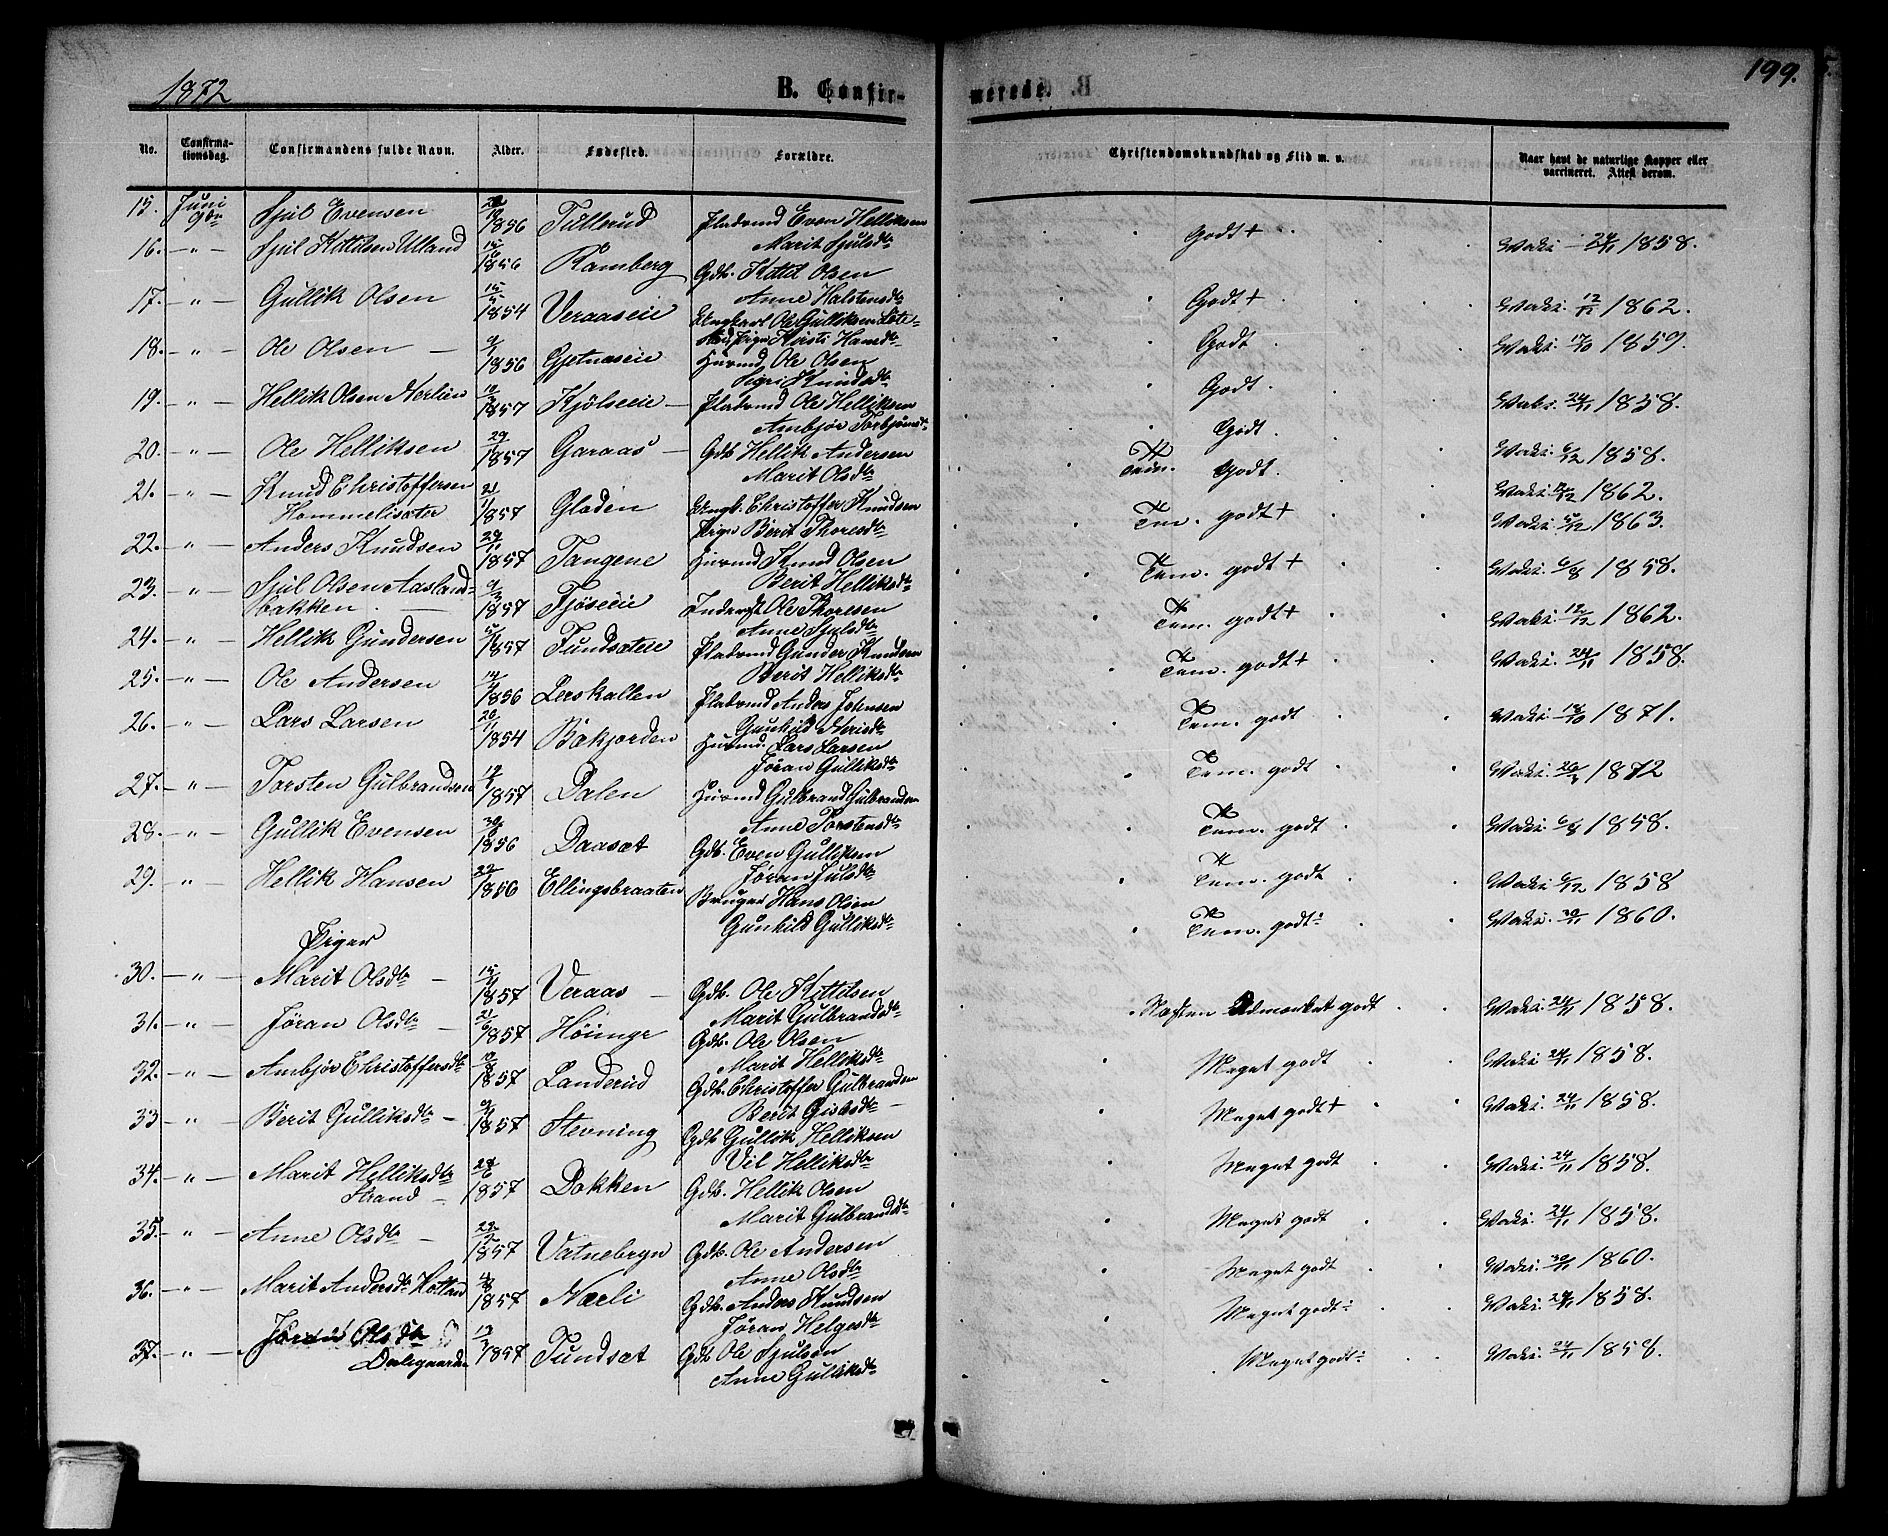 1872
B. Confir-
merede.
199.
No.
Confirma-
tionsdag.
Confirmandens fulde Navn.
Alder.
Fødested.
Forældre.
Christendomskundskab og Flid m. v.
Naar havt de naturlige Kopper eller
vaccineret. Attest derom.
15. Juni 9de Sjul Evensen 1856 Tillerud Pladsmd Even Helliksen
Marit Sjulsdtr Godt + Vaks. 24/11 1858.
16. -„- Sjul Kittilsen Ulland 1856 Ramberg Gdb. Kittil Olsen
Anne Halstensdtr Godt + Vaks. 12/12 1862.
17. -„- Gullik Olsen 1854 Veraaseie Ungkarl Ole Gulliksen
Pige Kirsti Hansdtr Godt Vaks. 17/10 1859.
18. -„- Ole Olsen 1856 Gjetnaseie Husmd Ole Olsen
Sigri Knudsdtr Godt Vaks. 24/11 1858.
19. -„- Hellik Olsen Nerlien 1857 Kjølseie Pladsmd Ole Helliksen
Ambjør Torbjørnsdtr Godt. Vaks. 6/12 1858.
20. -„- Ole Helliksen 29/ 1857 Garaas Gdb Hellik Andersen
Marit Olsdtr Tem. godt. Vaks. 12/12 1862.
21. -„- Knud Christoffersen
Hommelisæter 21/11 1857 Gladen Ungk. Christoffer Knudsen
Pige Berit Thoresdtr Tem. godt + Vaks. 1863.
22. -„- Anders Knudsen 1857 Tangene Husmd Knud Olsen
Berit Helliksdtr Tem. godt + Vaks. 6/8 1858.
23. -„- Sjul Olsen Aasland-
bakken 9/3 1857 Fjøseie Inderst Ole Thoresen
Anne Sjulsdtr Tem. godt + Vaks. 12/12 1862.
24. -„- Hellik Gundersen 1857 Tundsæteie Pladsmd Gunder Knudsen
Berit Helliksdtr Tem. godt + Vaks. 24/11 1858.
25. -„- Ole Andersen 1856 Lerskallen Pladsmd Anders Johnsen
Gunhild Nirisdtr Tem. godt Vaks. 18/10 1871.
26. -„- Lars Larsen 1854 Bækjorden Husmd. Lars Larsen
Jøran Gulliksdtr Tem. godt Vaks. 1872
27. -„- Torsten Gulbrandsen 1857 Dalen Husmd Gulbrand Gulbrandsen
Anne Torstensdtr Tem. godt Vaks. 6/8 1858.
28. -„- Gullik Evensen 1856 Daaset Gdb. Even Gulliksen
Jøran Julsdtr Tem. godt Vaks. 6/12 1858
29. -„- Hellik Hansen 1856 Ellingsbraaten Bruger Hans Olsen
Gunhild Gulliksdtr Tem. godt÷ Vaks. 30/11 1860.
Piger
30. -„- Marit Olsdtr 1857 Veraas Gdb. Ole Kittilsen
Marit Gulbrandsdtr Næsten Udmærket godt Vaks. 24/11 1858.
31. -„- Jøran Olsdtr 21/6 1857 Høimyr Gdb. Ole Olsen
Marit Helliksdtr Meget godt Vaks. 24/11 1858.
32. -„- Ambjør Christoffersdtr 1857 Landerud Gdb. Christoffer Gulbrandsen
Berit Meget godt + Vaks. 24/11 1858.
33 -„- Berit Gulliksdtr 1857 Stevning Gdb Gullik Helliksen
Vil Helliksdtr Meget godt Vaks. 24/11 1858.
34. -„- Marit Helliksdtr
Strand 1857 Dokken Gdb. Hellik Olsen
Marit Gulbrandsdtr Meget godt Vaks. 24/11 1858.
35. -„- Anne Olsdtr 22/2 1857 Vatnebryn Gdb. Ole Andersen
Anne Olsdtr Meget godt Vaks. 30/11 1860.
36. -„- Marit Andersdtr 1857 Nærli Gdb. Anders Knudsen
Jøran Helgesdtr Meget godt÷ Vaks. 24/11 1858.
37. -„- Jøran Olsdtr
Dalegaarden 1857 Tundsæt Gdb Ole Sjulsen
Anne Gulliksdtr Meget godt÷ Vaks. 24/11 1858.